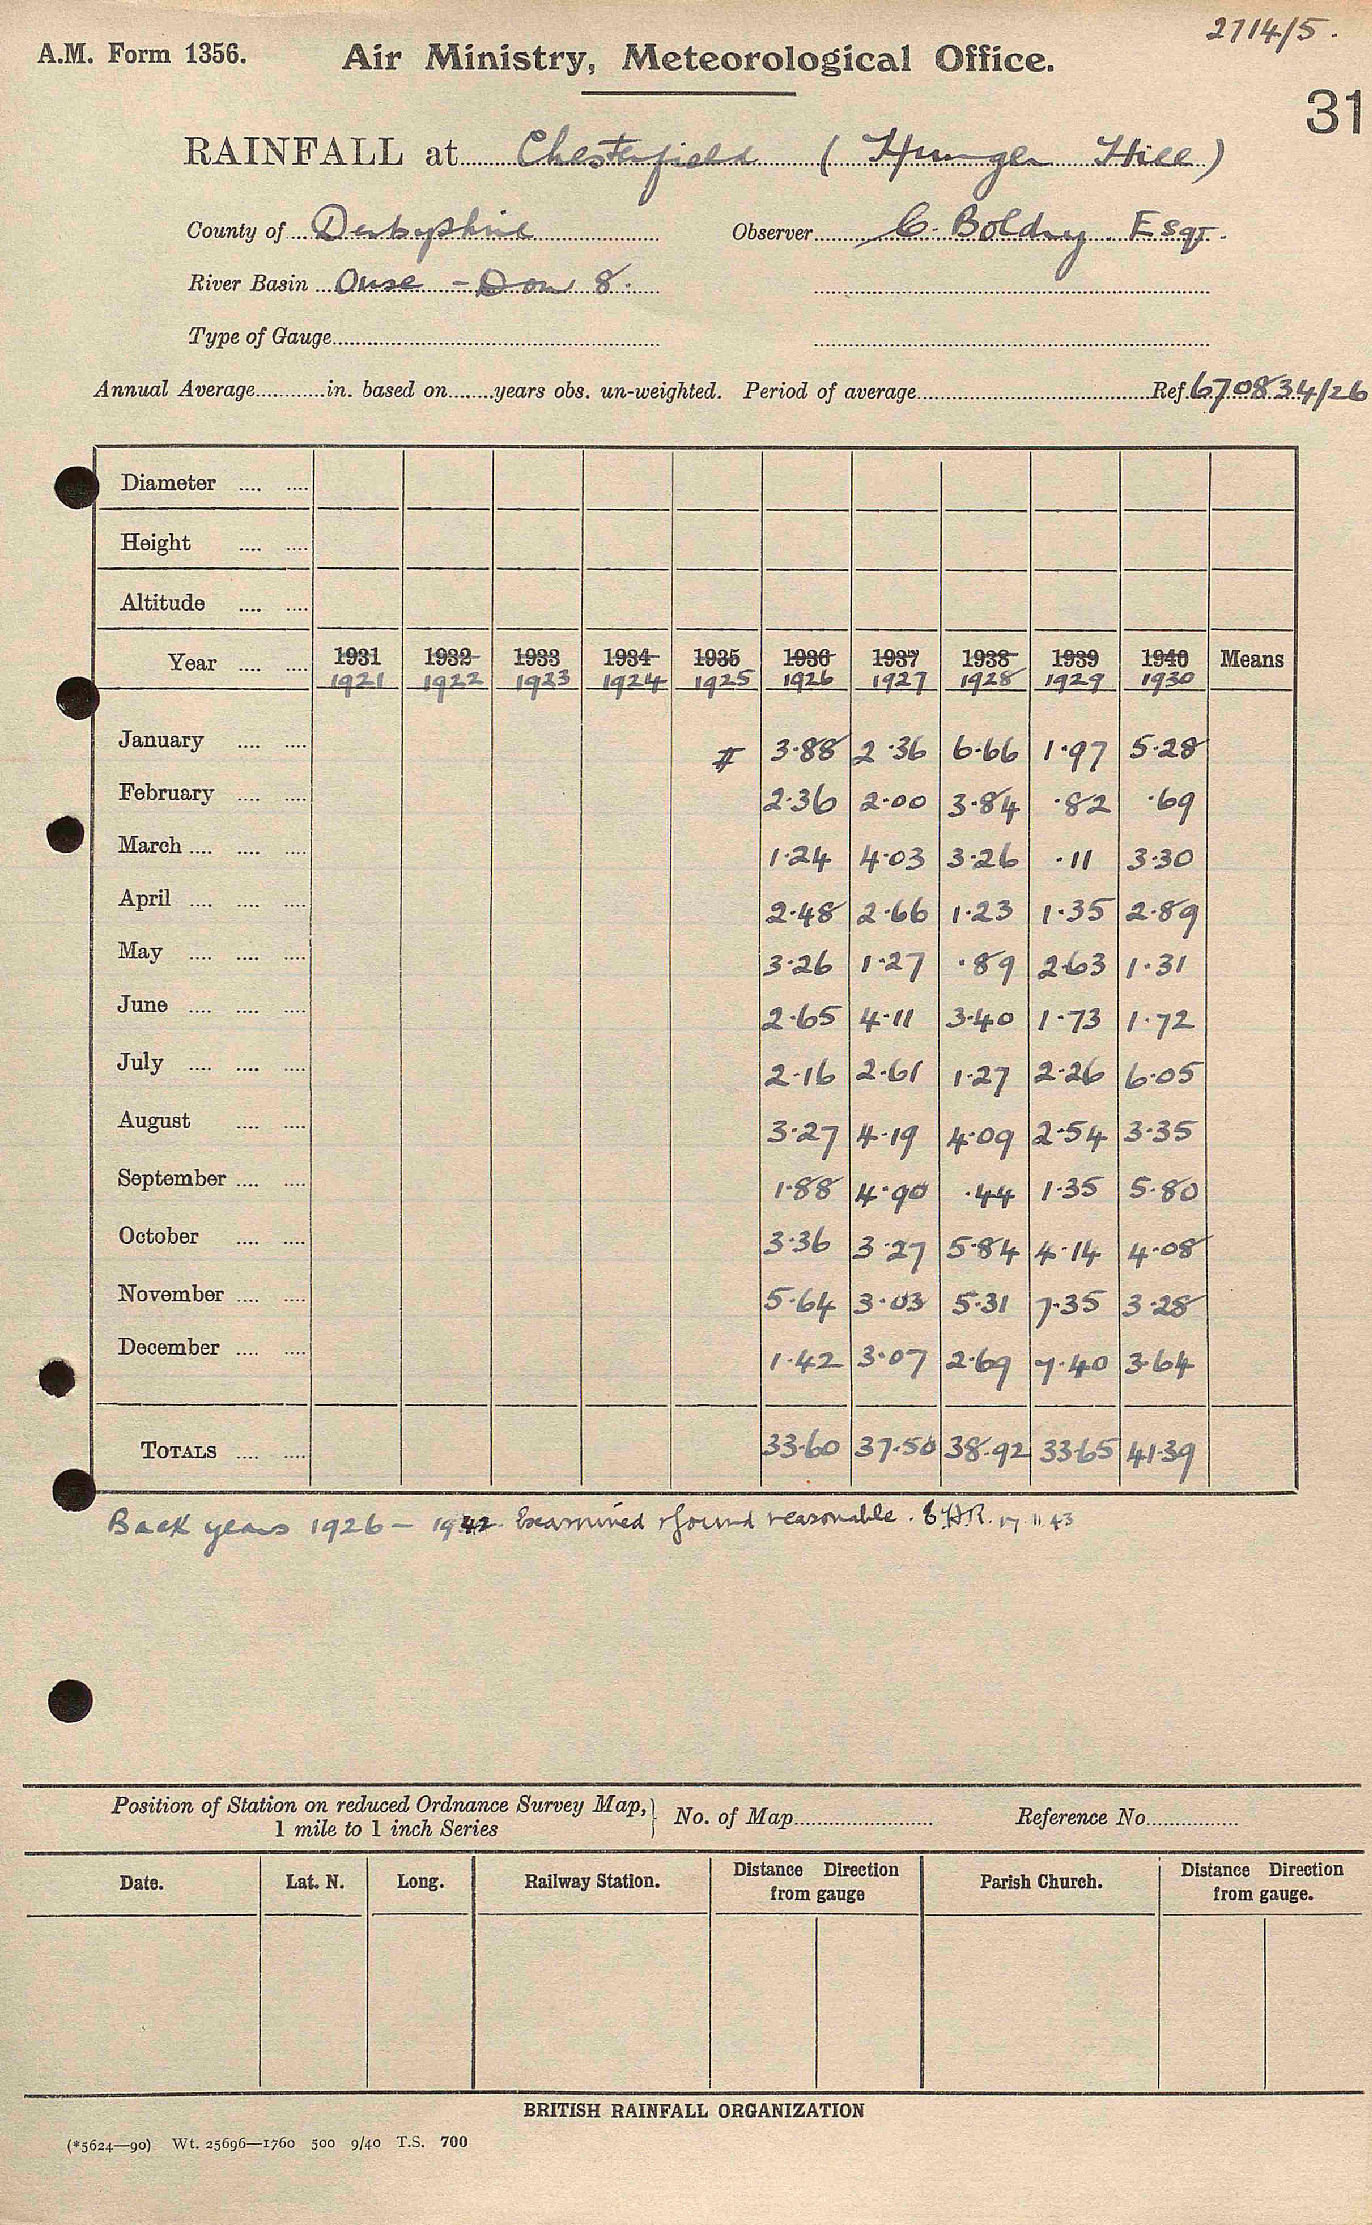 2714/5.
A.M. Form 1356. Air Ministry, Meteorological Office.
31
RAINFALL at Chesterfield (Hunger Hill)
County of Derbyshire Observer C. Boldry Esqr.
River Basin Ouse - Don 8.
Type of Gauge
Annual Average in. based on years obs. un-weighted. Period of average Ref. 670834/26
Diameter
Height
Altitude
Year 1931 1932 1933 1934 1935 1936 1937 1938 1939 1940 Means
1921 1922 1923 1924 1925 1926 1927 1928 1929 1930
January # 3.88 2.36 6.66 1.97 5.28
February 2.36 2.00 3.84 .82 .69
March 1.24 4.03 3.26 .11 3.30
April 2.48 2.66 1.23 1.35 2.89
May 3.26 1.27 .89 2.63 1.31
June 2.65 4.11 3.40 1.73 1.72
July 2.16 2.61 1.27 2.26 6.05
August 3.27 4.19 4.09 2.54 3.35
September 1.88 4.90 .44 1.35 5.80
October 3.36 3.27 5.84 4.14 4.08
November 5.64 3.03 5.31 7.35 3.28
December 1.42 3.07 2.69 7.40 3.64
TOTALS 33.60 37.50 38.92 33.65 41.39
Back years 1926 - 1942 Examined & found reasonable. 17 11 43
Position of Station on reduced Ordnance Survey Map, } No. of Map Reference No.
1 mile to 1 inch Series
Date. Lat. N. Long. Railway Station. Distance Direction from gauge Parish Church. Distance Direction from gauge.
BRITISH RAINFALL ORGANIZATION
(*5624—90) Wt. 25696—1760 500 9/40 T.S. 700